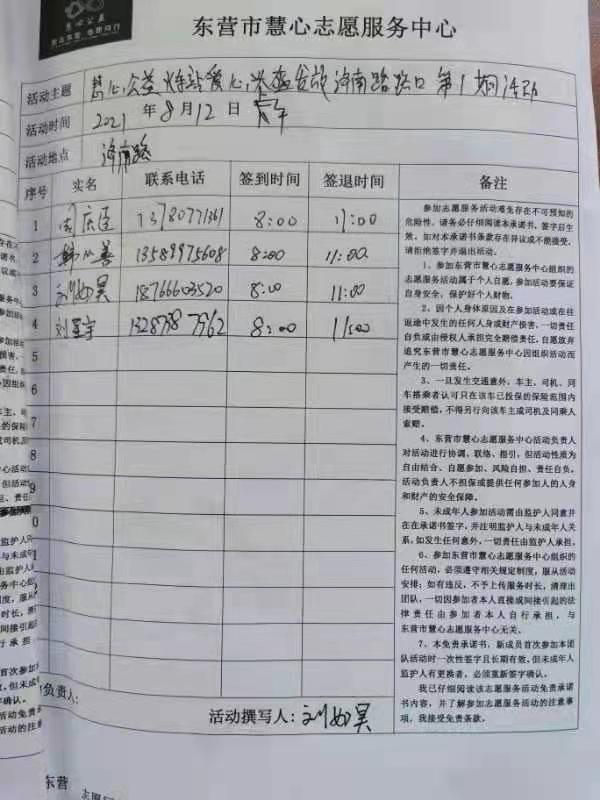 慧心公益
东营市慧心志愿服务中心
活动主题 慧心公益 爱心 发放 济南路路口 第1期活动
活动时间 2021 年 8 月 12 日
活动地点 济南路
序号 实名 联系电话 签到时间 签退时间 备注
1 周庆臣 8:00 11:00
2 韩以善 13589975608 8:00 11:00
3 刘如昊 18766603520 8:00 11:00
4 刘星宇 8:00 11:00
5
6
7
8
9
0
参加志愿服务活动难免存在不可预知的
危险性，请务必仔细阅读本承诺书，签字后生
效。如对本承诺书条款存在异议或不能接受，
请拒绝签字并退出活动。
1、参加东营市慧心志愿服务中心组织的
志愿服务活动属于个人自愿，参加活动要保证
自身安全，保护好个人财物。
2、因个人身体原因及在参加活动或在往
返途中发生的任何人身或财产损害，一切责任
自负或由侵权人承担完全赔偿责任，自愿放弃
追究东营市慧心志愿服务中心因组织活动而
产生的一切责任。
3、一旦发生交通意外，车主、司机、同车
搭乘者认可只在该车已投保的保险范围内
接受赔偿，不得另行向该车主或司机及同乘人
索赔。
4、东营市慧心志愿服务中心活动负责人
对活动进行协调、联络、指引，但活动性质为
自由结合、自愿参加、风险自担、责任自负。
活动负责人不担保或提供任何参加人的人身
和财产的安全保障。
5、未成年人参加活动需由监护人同意并
在在承诺书签字，并注明监护人与未成年人关
系，如发生任何意外，一切责任由监护人承担。
6、参加东营市慧心志愿服务中心组织的
任何活动，必须遵守相关规定制度，服从活动
安排；如有违反，不予上传服务时长，清理出
团队，一切因参加者本人直接或间接引起的法
律责任由参加者本人自行承担，与
东营市慧心志愿服务中心无关。
7、本免责承诺书，新成员首次参加本团
队活动时一次性签字且长期有效，但未成年人
监护人有更换者，必须重新签字确认。
我已仔细阅读该志愿服务活动免责承诺
书内容，并了解参加志愿服务活动的注意事
项，我接受免责条款。
负责人：
活动撰写人：刘如昊
东营